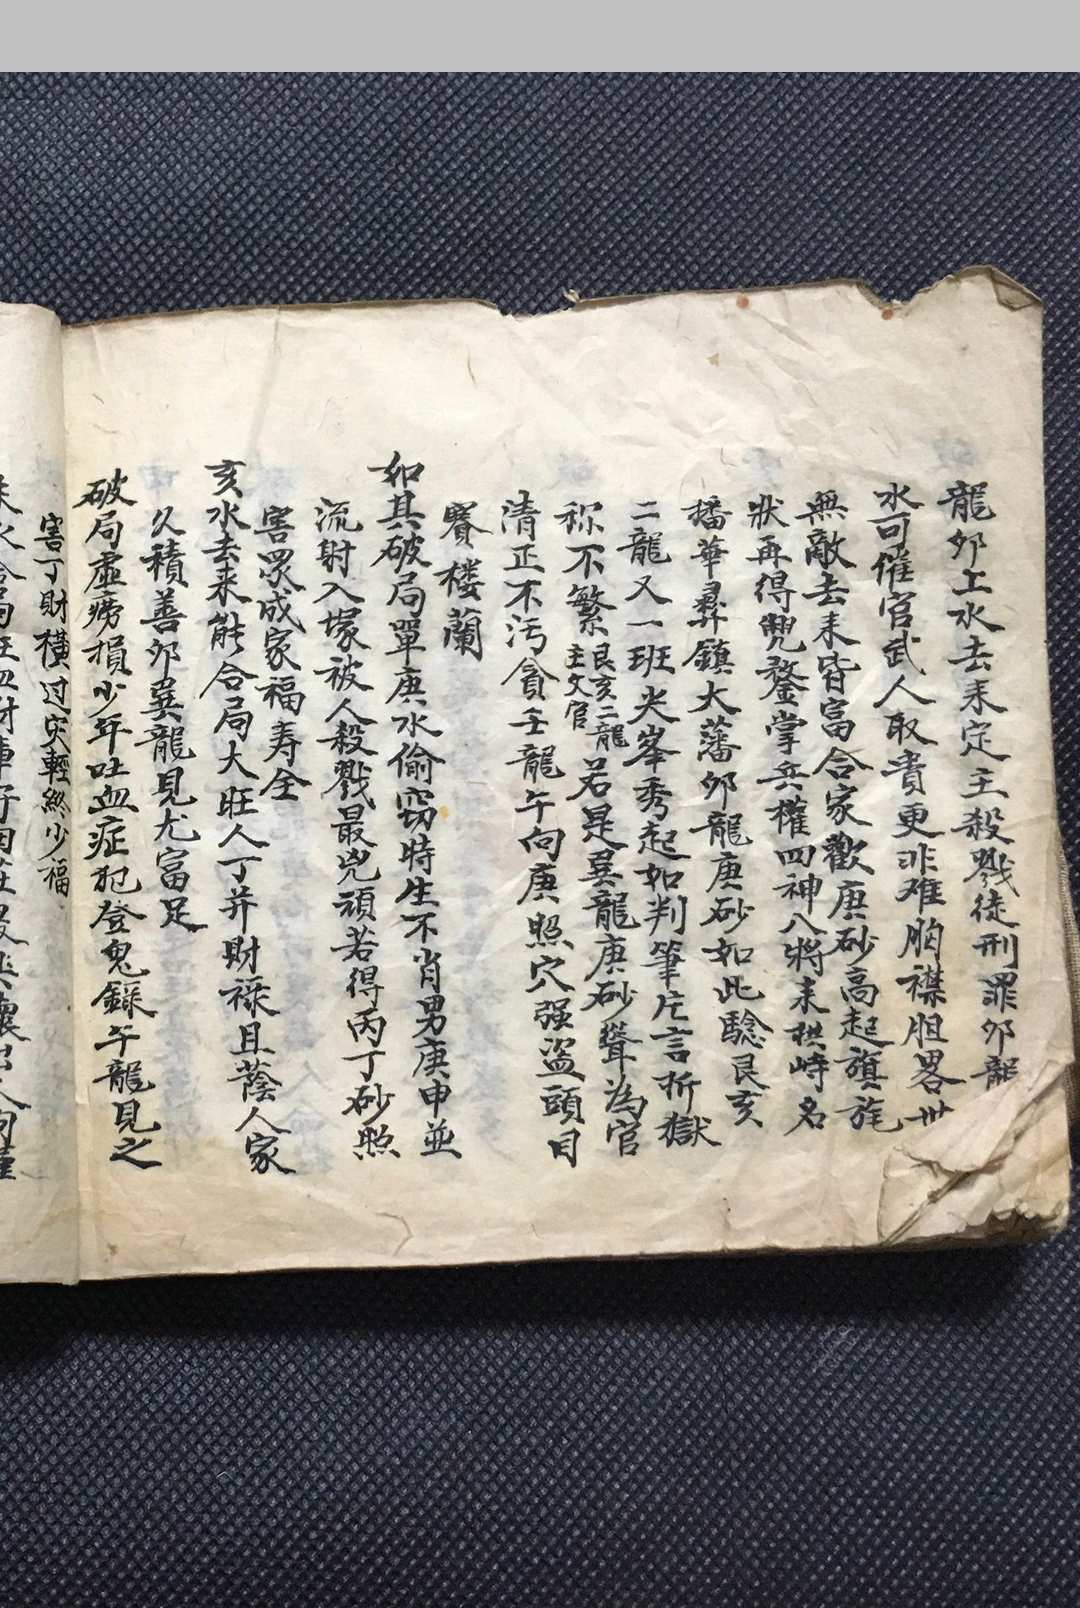 龍卯上水去来定主殺戮徒刑罪卯龍
水可催官武人取貴更非难胸襟胆畧世
無敵去来皆富合家歡庚砂高起旗旄
狀再得兜鍪掌兵權四神八將来拱峙名
播華彛鎮大藩卯龍庚砂如此騐艮亥
二龍又一班尖峯秀起如判筆片言折獄
称不繁艮亥二龍主文官若是巽龍庚砂聳為官
清正不污貪壬龍午向庚照穴强盗頭目
賽楼蘭
如其破局單庚水偷窃時生不肖男庚申並
流射入塚被人殺戮最兇頑若得丙丁砂照
害眾成家福寿全
亥水去来能合局大旺人丁并財禄且蔭人家
久積善卯巽龍見尤富足
破局虛痨損少年吐血症犯登鬼錄午龍見之
害丁財橫过灾輕終少福